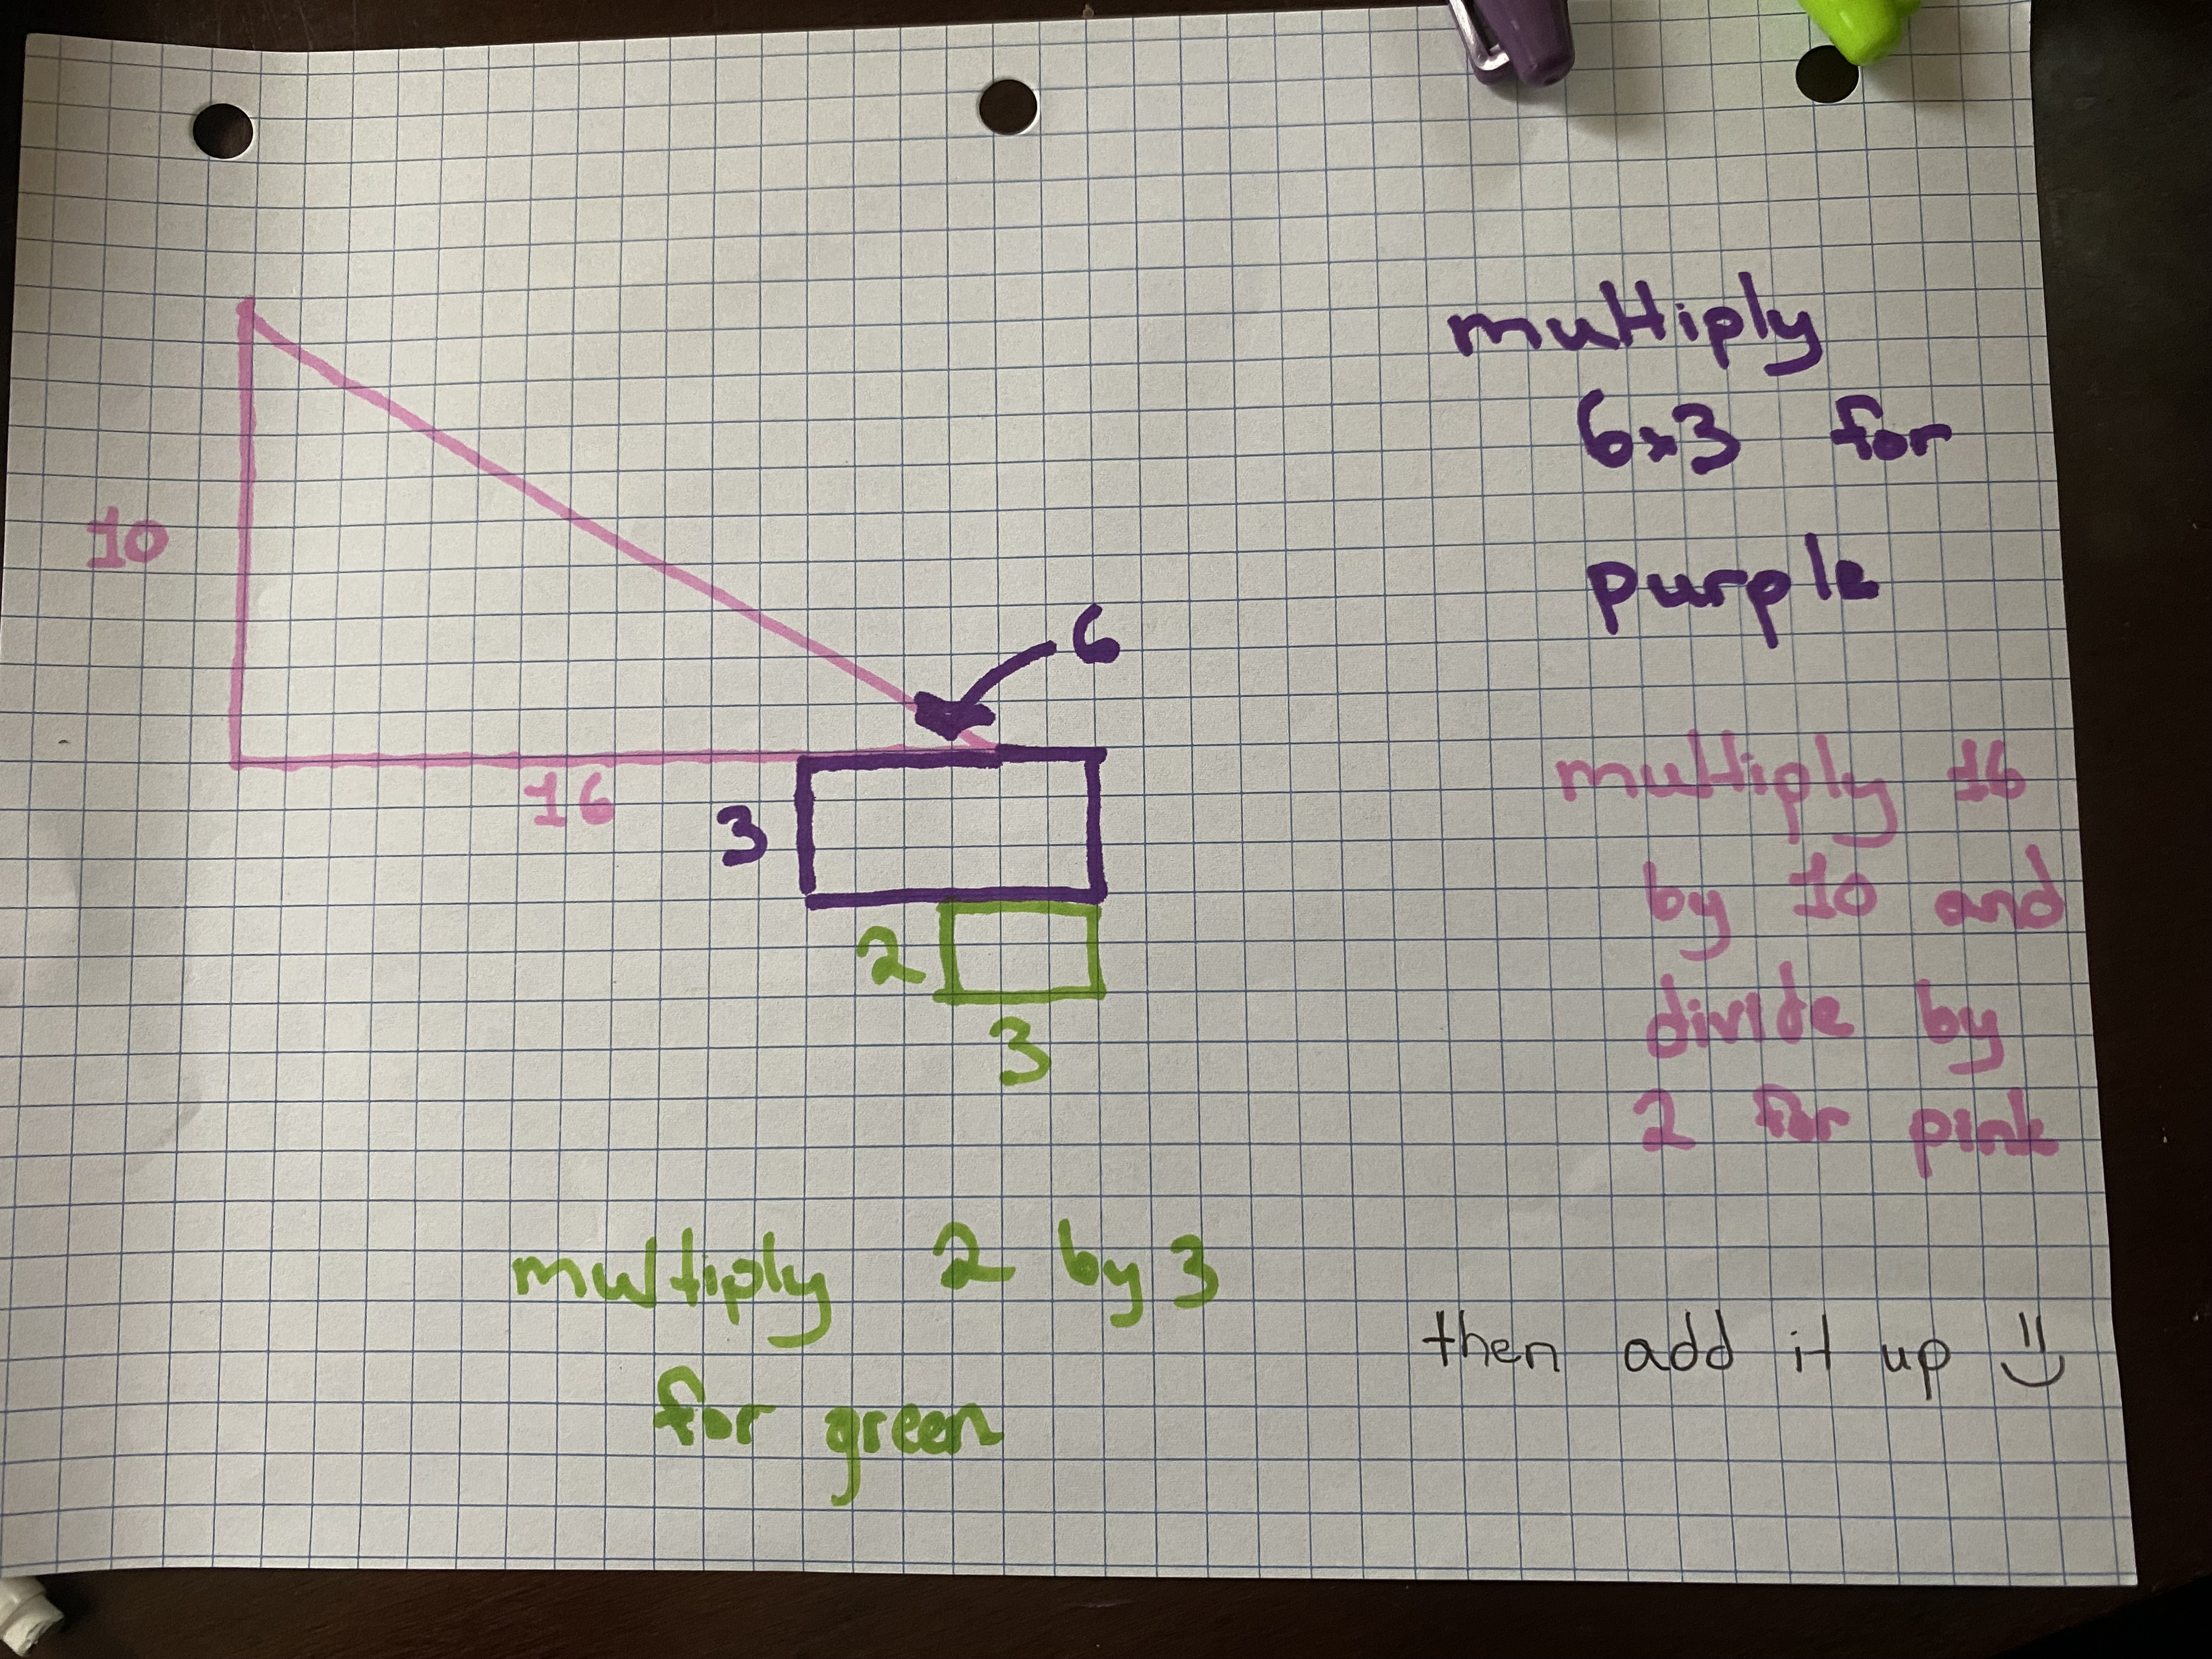 multiply
6x3 for
purple
10
6
16
3
multiply 16
by 10 and
divide by
2 for pink
2
3
multiply 2 by 3
for green
then add it up =)